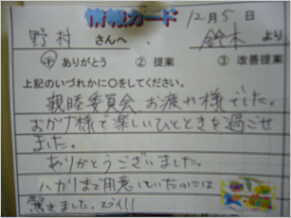 情報カード 12月5日
野村 さんへ 鈴木 より
① ありがとう ② 提案 ③ 改善提案
上記のいづれかに○をしてください。
親睦委員会お疲れ様でした。
おかげ様で楽しいひとときを過ごせ
ました。
ありがとうございました。
ハガリまで用意していたのには
驚きました。スゴイ!!